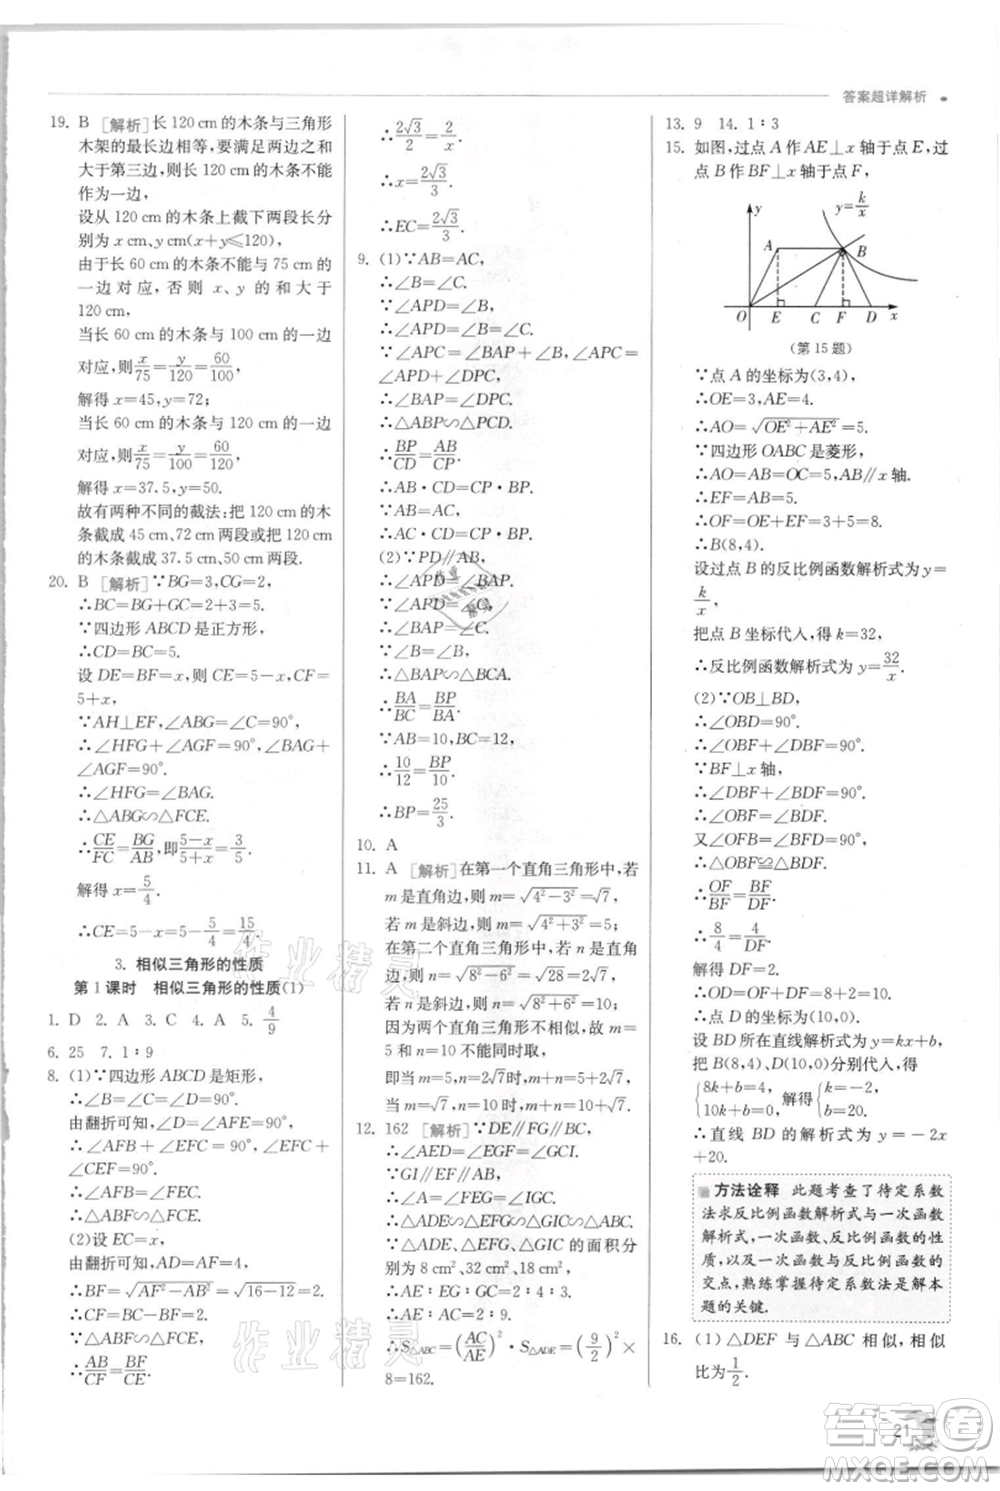 答案超详解析
19. B [解析]长 120 cm 的木条与三角形
木架的最长边相等,要满足两边之和
大于第三边,则长 120 cm 的木条不能
作为一边,
设从 120 cm 的木条上截下两段长分
别为 x cm、y cm(x+y≤120),
由于长 60 cm 的木条不能与 75 cm 的
一边对应,否则 x、y 的和大于
120 cm,
当长 60 cm 的木条与 100 cm 的一边
对应,则 x/75=y/120=60/100,
解得 x=45,y=72;
当长 60 cm 的木条与 120 cm 的一边
对应,则 x/75=y/100=60/120,
解得 x=37.5,y=50.
故有两种不同的截法:把 120 cm 的木
条截成 45 cm、72 cm 两段或把 120 cm
的木条截成 37.5 cm、50 cm 两段.
20. B [解析]∵BG=3,CG=2,
∴BC=BG+GC=2+3=5.
∵四边形 ABCD 是正方形,
∴CD=BC=5.
设 DE=BF=x,则 CE=5-x,CF=
5+x.
∵AH⊥EF,∠ABG=∠C=90°,
∴∠HFG+∠AGF=90°,∠BAG+
∠AGF=90°.
∴∠HFG=∠BAG.
∴△ABG∽△FCE.
∴CE/FC=BG/AB,即 (5-x)/(5+x)=3/5.
解得 x=5/4.
∴CE=5-x=5-5/4=15/4.
3. 相似三角形的性质
第 1 课时 相似三角形的性质(1)
1. D 2. A 3. C 4. A 5. 4/9
6. 25 7. 1∶9
8. (1)∵四边形 ABCD 是矩形,
∴∠B=∠C=∠D=90°.
由翻折可知,∠D=∠AFE=90°,
∴∠AFB+∠EFC=90°,∠EFC+
∠CEF=90°.
∴∠AFB=∠FEC.
∴△ABF∽△FCE.
(2)设 EC=x,
由翻折可知,AD=AF=4,
∴BF=√(AF²-AB²)=√(16-12)=2.
∴CF=BC-BF=2.
∵△ABF∽△FCE,
∴AB/CF=BF/CE.
∴2√3/2=2/x.
∴x=2√3/3.
∴EC=2√3/3.
9. (1)∵AB=AC,
∴∠B=∠C.
∵∠APD=∠B,
∴∠APD=∠B=∠C.
∵∠APC=∠BAP+∠B,∠APC=
∠APD+∠DPC,
∴∠BAP=∠DPC.
∴△ABP∽△PCD.
∴BP/CD=AB/CP.
∴AB·CD=CP·BP.
∵AB=AC,
∴AC·CD=CP·BP.
(2)∵PD∥AB,
∴∠APD=∠BAP.
∵∠APD=∠C,
∴∠BAP=∠C.
∵∠B=∠B,
∴△BAP∽△BCA.
∴BA/BC=BP/BA.
∵AB=10,BC=12,
∴10/12=BP/10.
∴BP=25/3.
10. A
11. A [解析]在第一个直角三角形中,若
m 是直角边,则 m=√(4²-3²)=√7,
若 m 是斜边,则 m=√(4²+3²)=5.
在第二个直角三角形中,若 n 是直角
边,则 n=√(8²-6²)=√28=2√7,
若 n 是斜边,则 n=√(8²+6²)=10;
因为两个直角三角形不相似,故 m=
5 和 n=10 不能同时取.
当 m=5 时,n=2√7,m/n=5/(2√7)=5√7/14;
当 m=√7 时,n=10,m/n=√7/10.
12. 162 [解析]∵DE∥FG∥BC,
∴∠AED=∠EGF=∠GCI.
∵GI∥EF∥AB,
∴∠A=∠FEG=∠IGC.
∴△ADE∽△EFG∽△GIC∽△ABC.
∵△ADE、△EFG、△GIC 的面积分
别是 8 cm²、32 cm²、18 cm²,
∴AE∶EG∶GC=2∶4∶3.
∴AE∶AC=2∶9.
∴S△ABC=(AC/AE)²·S△ADE=(9/2)²×
8=162.
13. 9 14. 1∶3
15. 如图,过点 A 作 AE⊥x 轴于点 E,过
点 B 作 BF⊥x 轴于点 F,
y y=k/x
A B
O E C F D x
(第 15 题)
∵点 A 的坐标为(3,4),
∴OE=3,AE=4.
∴AO=√(OE²+AE²)=5.
∵四边形 OABC 是菱形,
∴AO=AB=OC=5,AB∥x 轴.
∴EF=AB=5.
∴OF=OE+EF=3+5=8.
∴B(8,4).
设过点 B 的反比例函数解析式为 y=
k/x,
把点 B 坐标代入,得 k=32,
∴反比例函数解析式为 y=32/x.
(2)∵OB⊥BD,
∴∠OBD=90°.
∴∠OBF+∠DBF=90°.
∵BF⊥x 轴,
∴∠DBF+∠BDF=90°.
∴∠OBF=∠BDF.
又∠OFB=∠BFD=90°,
∴△OBF≌△BDF.
∴OF/BF=BF/DF.
∴8/4=4/DF.
解得 DF=2.
∴OD=OF+DF=8+2=10.
∴点 D 的坐标为(10,0).
设 BD 所在直线解析式为 y=kx+b,
把 B(8,4)、D(10,0)分别代入,得
{8k+b=4, 10k+b=0. 解得{k=-2, b=20.
∴直线 BD 的解析式为 y=-2x
+20.
方法诠释 此题考查了待定系数
法求反比例函数解析式与一次函数
解析式,一次函数、反比例函数的性
质,以及一次函数与反比例函数的
交点,熟练掌握待定系数法是解本
题的关键.
16. (1) △DEF 与 △ABC 相似,相似
比为1/2.
21
作业精灵
作业精灵
答案卷
MXQE.COM